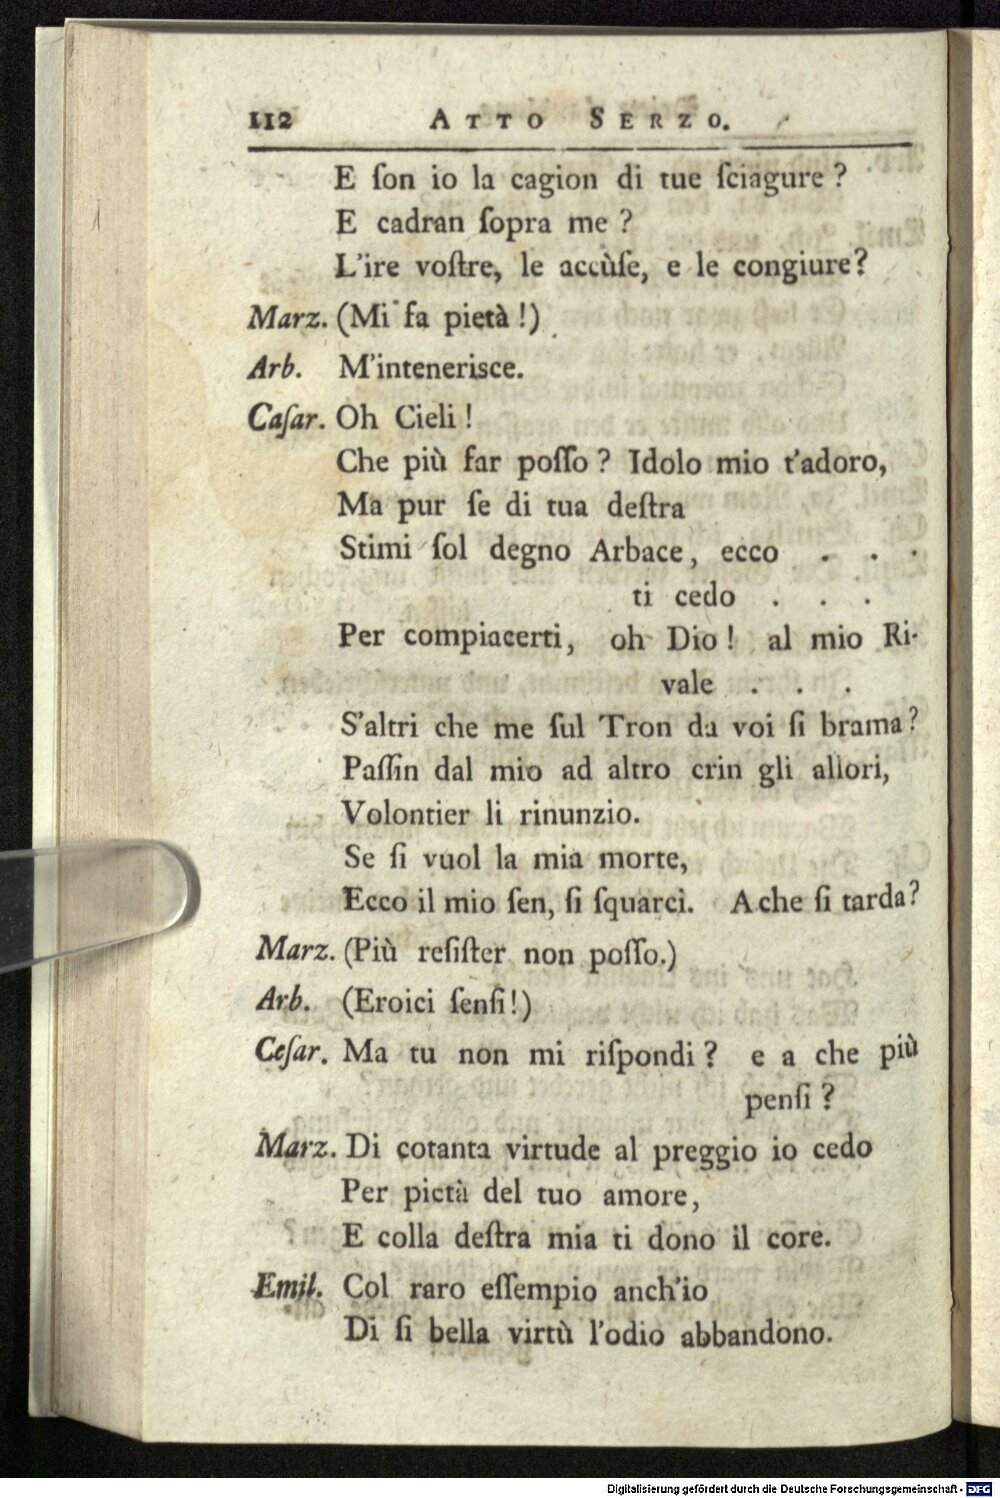 112 ATTO SERZO.
E ſon io la cagion di tue ſciagure?
E cadran ſopra me?
L'ire voſtre, le accùſe, e le congiure?
Marz. (Mi fa pietà!)
Arb. M'intenerisce.
Caſar. Oh Cieli!
Che più far poſſo? Idolo mio t'adoro,
Ma pur ſe di tua deſtra
Stimi ſol degno Arbace, ecco . . .
ti cedo . . .
Per compiacerti, oh Dio! al mio Ri-
vale . . .
S'altri che me ſul Tron da voi ſi brama?
Paſſin dal mio ad altro crin gli allori,
Volontier li rinunzio.
Se ſi vuol la mia morte,
Ecco il mio ſen, ſi ſquarci. A che ſi tarda?
Marz. (Più reſiſter non poſſo.)
Arb. (Eroici ſenſi!)
Ceſar. Ma tu non mi riſpondi? e a che più
penſi?
Marz. Di cotanta virtude al preggio io cedo
Per pietà del tuo amore,
E colla deſtra mia ti dono il core.
Emil. Col raro eſſempio anch'io
Di ſi bella virtù l'odio abbandono.
Digitalisierung gefördert durch die Deutsche Forschungsgemeinschaft - DFG